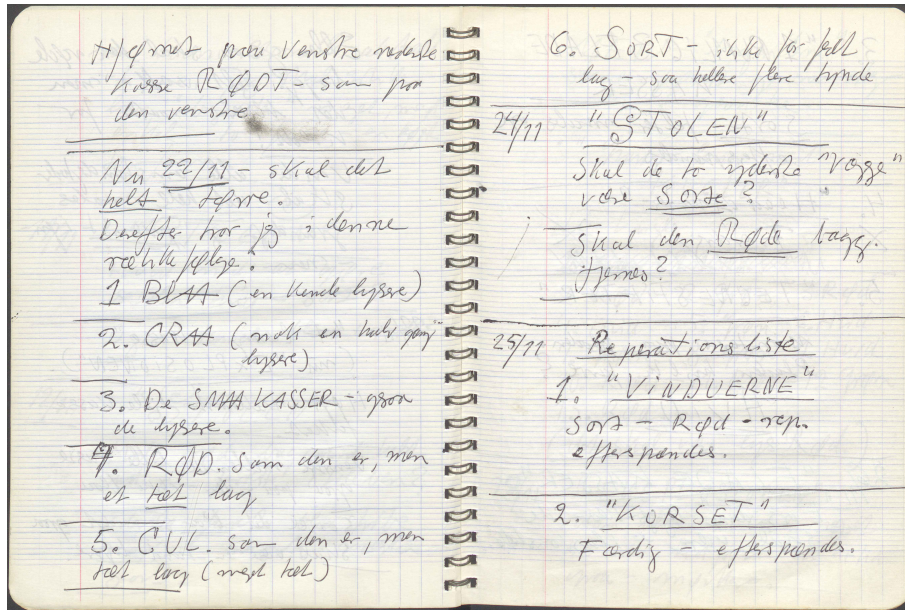 Hjørnet paa venstre nederste
Kasse RØDT – som paa
den venstre
Nu 22/11 – skal det
helt tørre.
Derefter tror jeg i denne
rækkefølge:
1 BLAA (en kende lysere)
2. GRAA (nok en halv gang
lysere)
3. De SMAA KASSER – graa
de lysere.
4. RØD. som den er, men
et tæt lag
5. GUL. som den er, men
tæt lag (meget tæt)
6. SORT – ikke for fedt
lag – saa hellere flere tynde
24/11 "STOLEN"
Skal de to yderste "Vægge"
være Sorte?
Skal den Røde bagg.
fjernes?
25/11 Reperationsliste
1. "VINDUERNE"
Sort – Rød – rep.
efterspændes.
2. "KORSET"
Færdig – efterspændes.